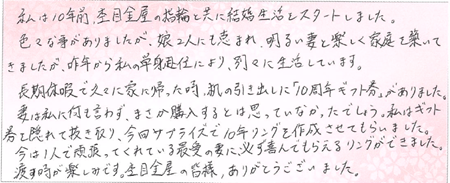 私は10年前、杢目金屋の指輪と共に結婚生活をスタートしました。
色々な事がありましたが、娘2人にも恵まれ、明るい妻と楽しく家庭を築いて
きましたが、昨年から私の単身赴任により、別々に生活しています。
長期休暇で久々に家に帰った時、机の引き出しに「10周年ギフト券」がありました。
妻は私に何も言わず、まさか購入するとは思っていなかったでしょう。私はギフト
券を隠れて抜き取り、今回サプライズで10年リングを作成させてもらいました。
今は1人で頑張ってくれている最愛の妻に必ず喜んでもらえるリングができました。
渡す時が楽しみです。杢目金屋の皆様、ありがとうございました。